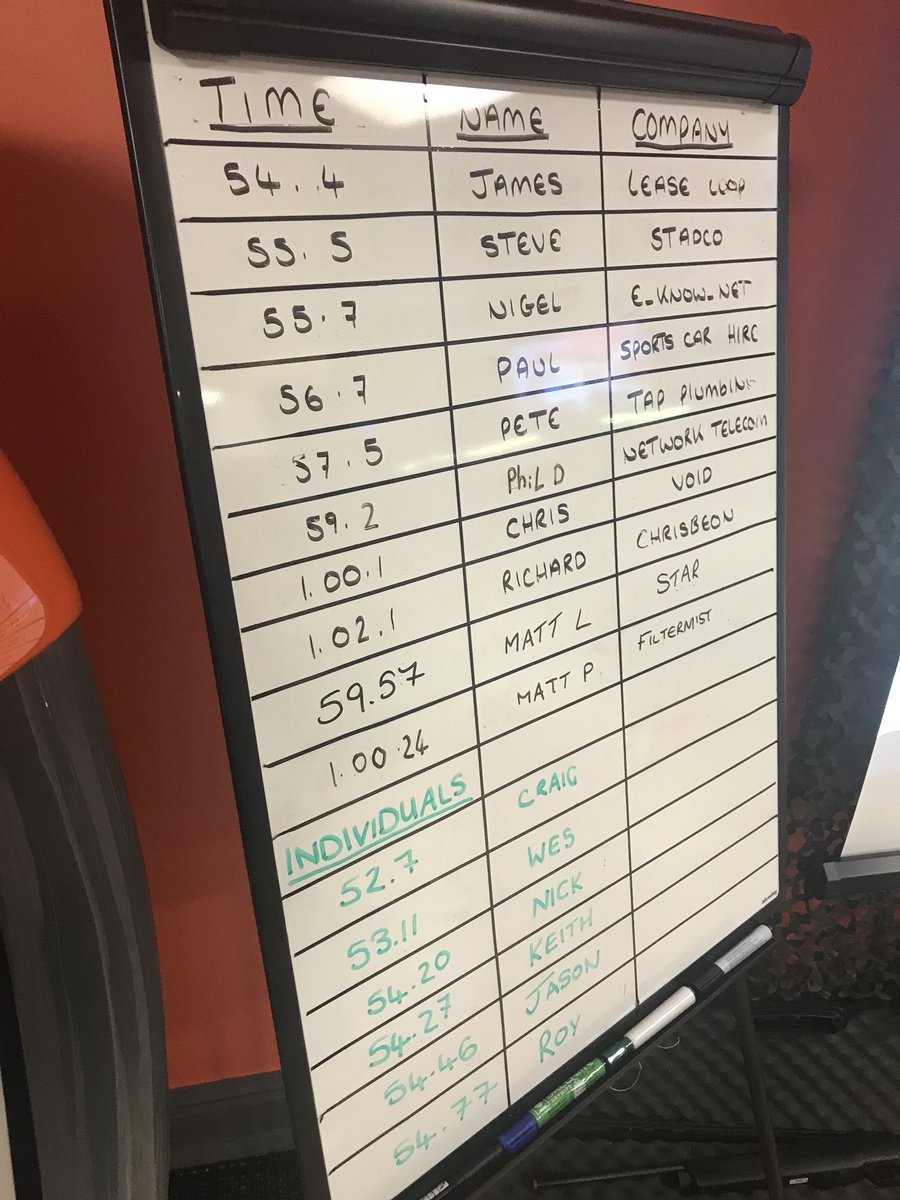 TIME NAME COMPANY
54.4 JAMES LEASE LOOP
55.5 STEVE STADCO
55.7 NIGEL E_KNOW_NET
56.7 PAUL SPORTS CAR HIRE
57.5 PETE TAP PlumbiNG
59.2 PhiL D NETWORK TELECOM
1.00.1 CHRIS VOID
1.02.1 RICHARD CHRISBEON
59.57 MATT L STAR
1.00.24 MATT P FILTERMIST
INDIVIDUALS
52.7 CRAIG
53.11 WES
54.20 NICK
54.27 KEITH
54.46 JASON
54.77 ROY